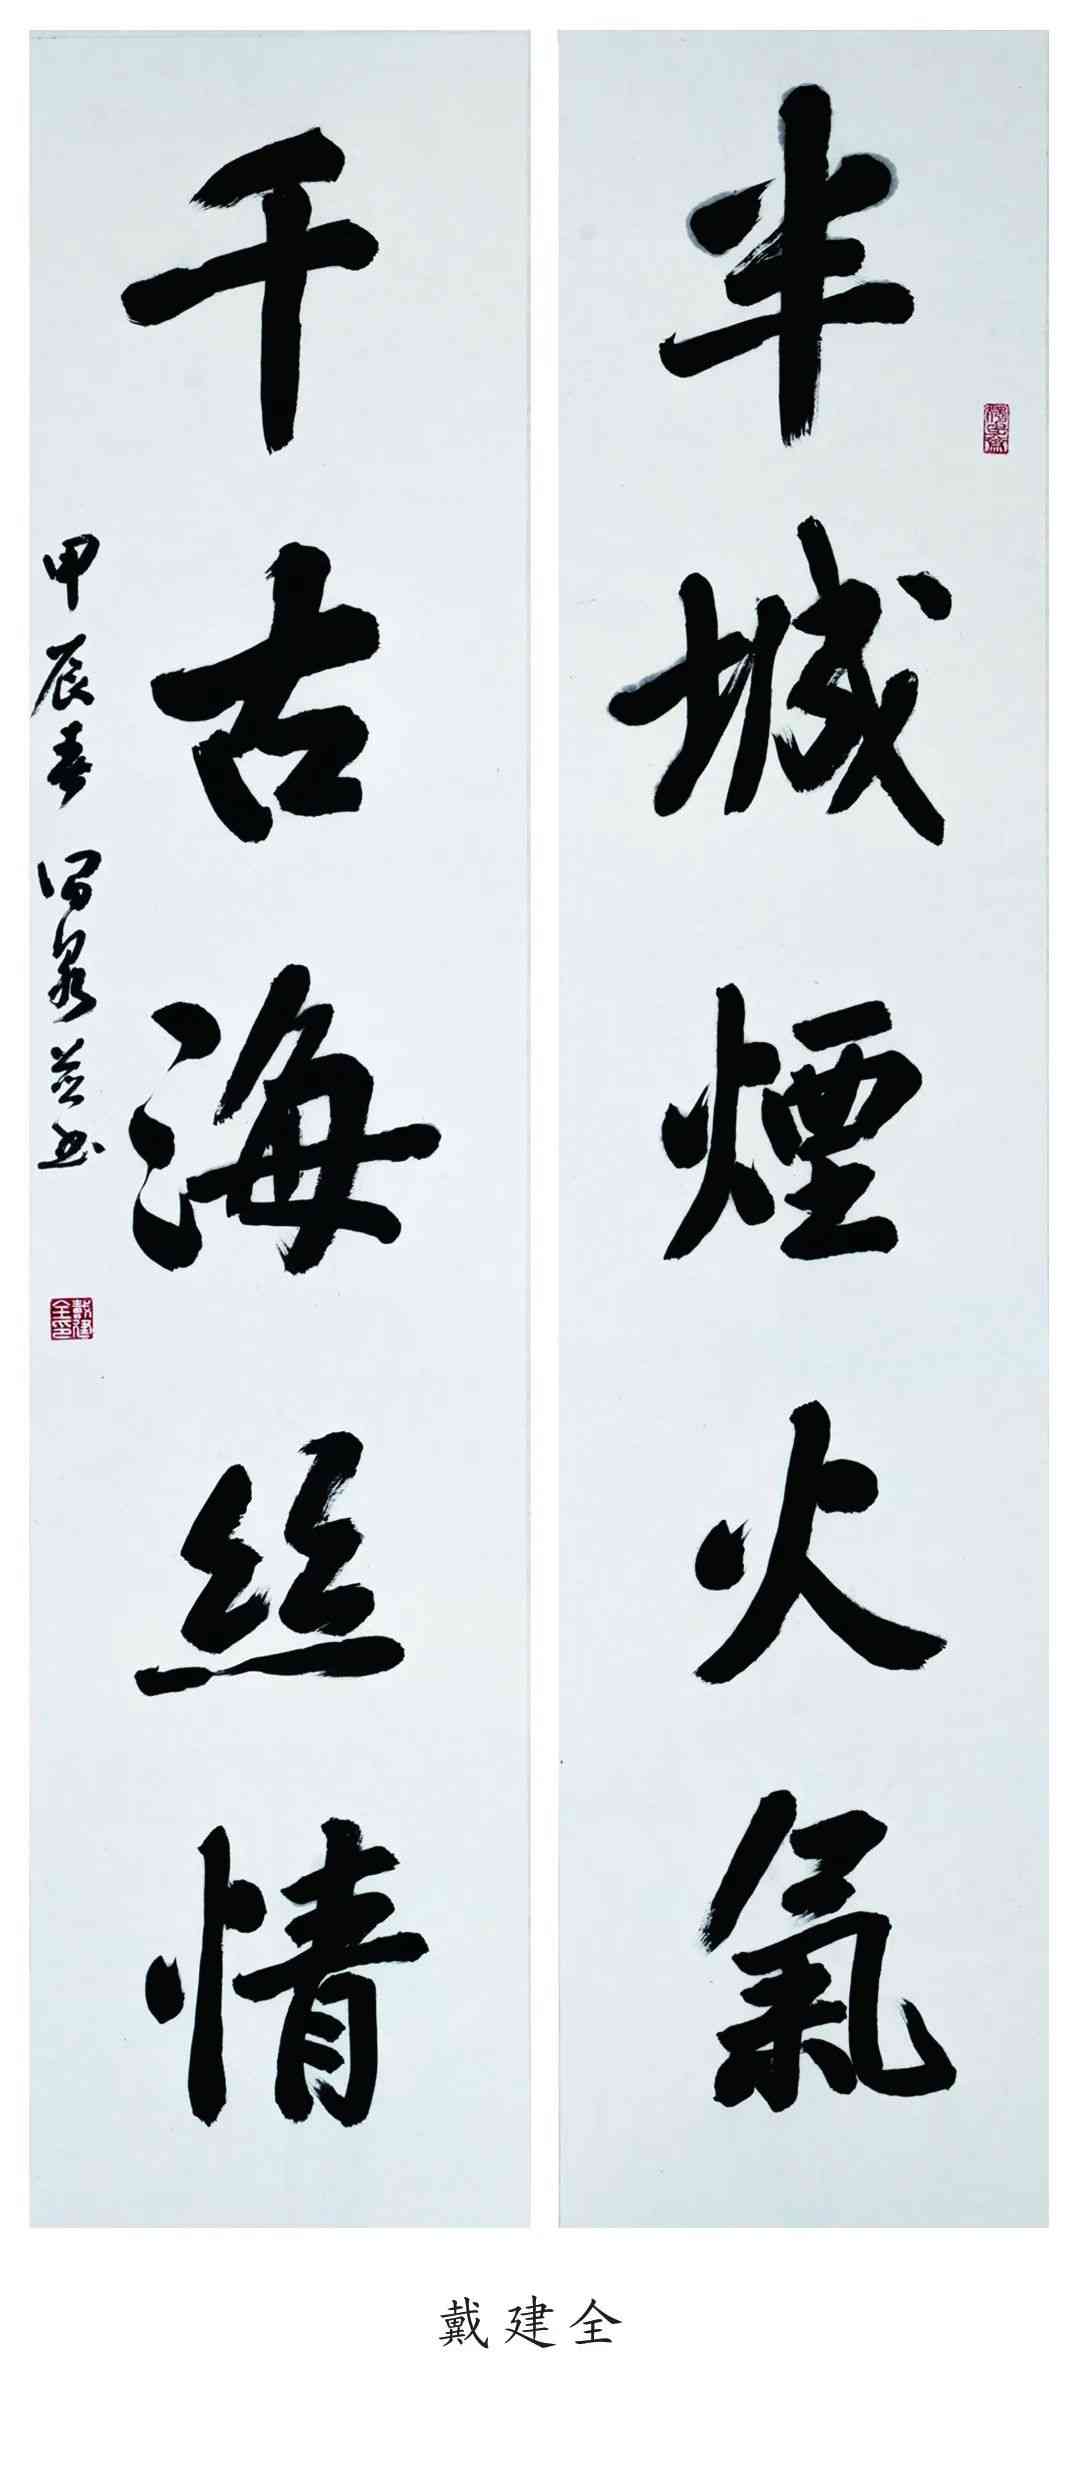 半城煙火氣
千古海絲情
甲辰春 泉並书
戴建全印
戴建全